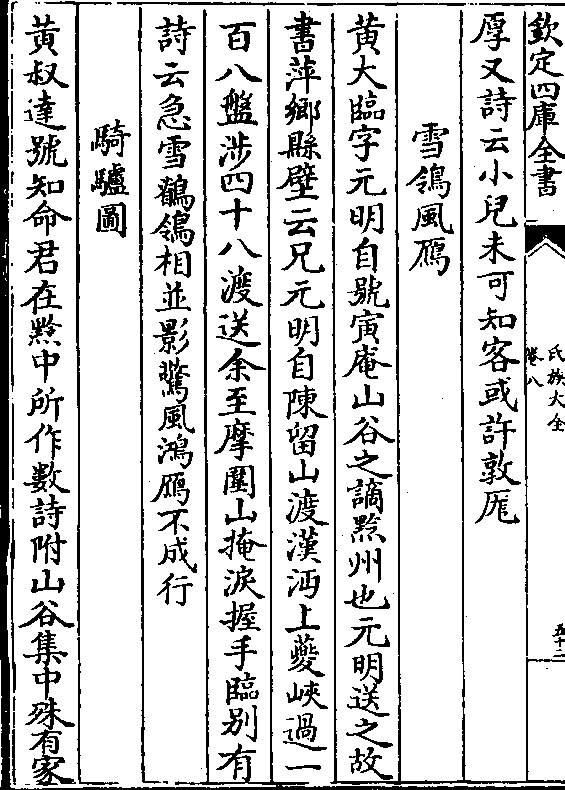 欽定四庫全書
氏族大全
卷八
五十二
厚又詩云小兒未可知客或許敦厖
雪鴒風鴈
黃大臨字元明自號寅庵山谷之謫黔州也元明送之故
書萍鄉縣壁云兄元明自陳留山渡漢沔上夔峽過一
百八盤涉四十八渡送余至摩圍山掩淚握手臨別有
詩云急雪鶺鴒相並影驚風鴻鴈不成行
騎驢圖
黃叔達號知命君在黔中所作數詩附山谷集中殊有家